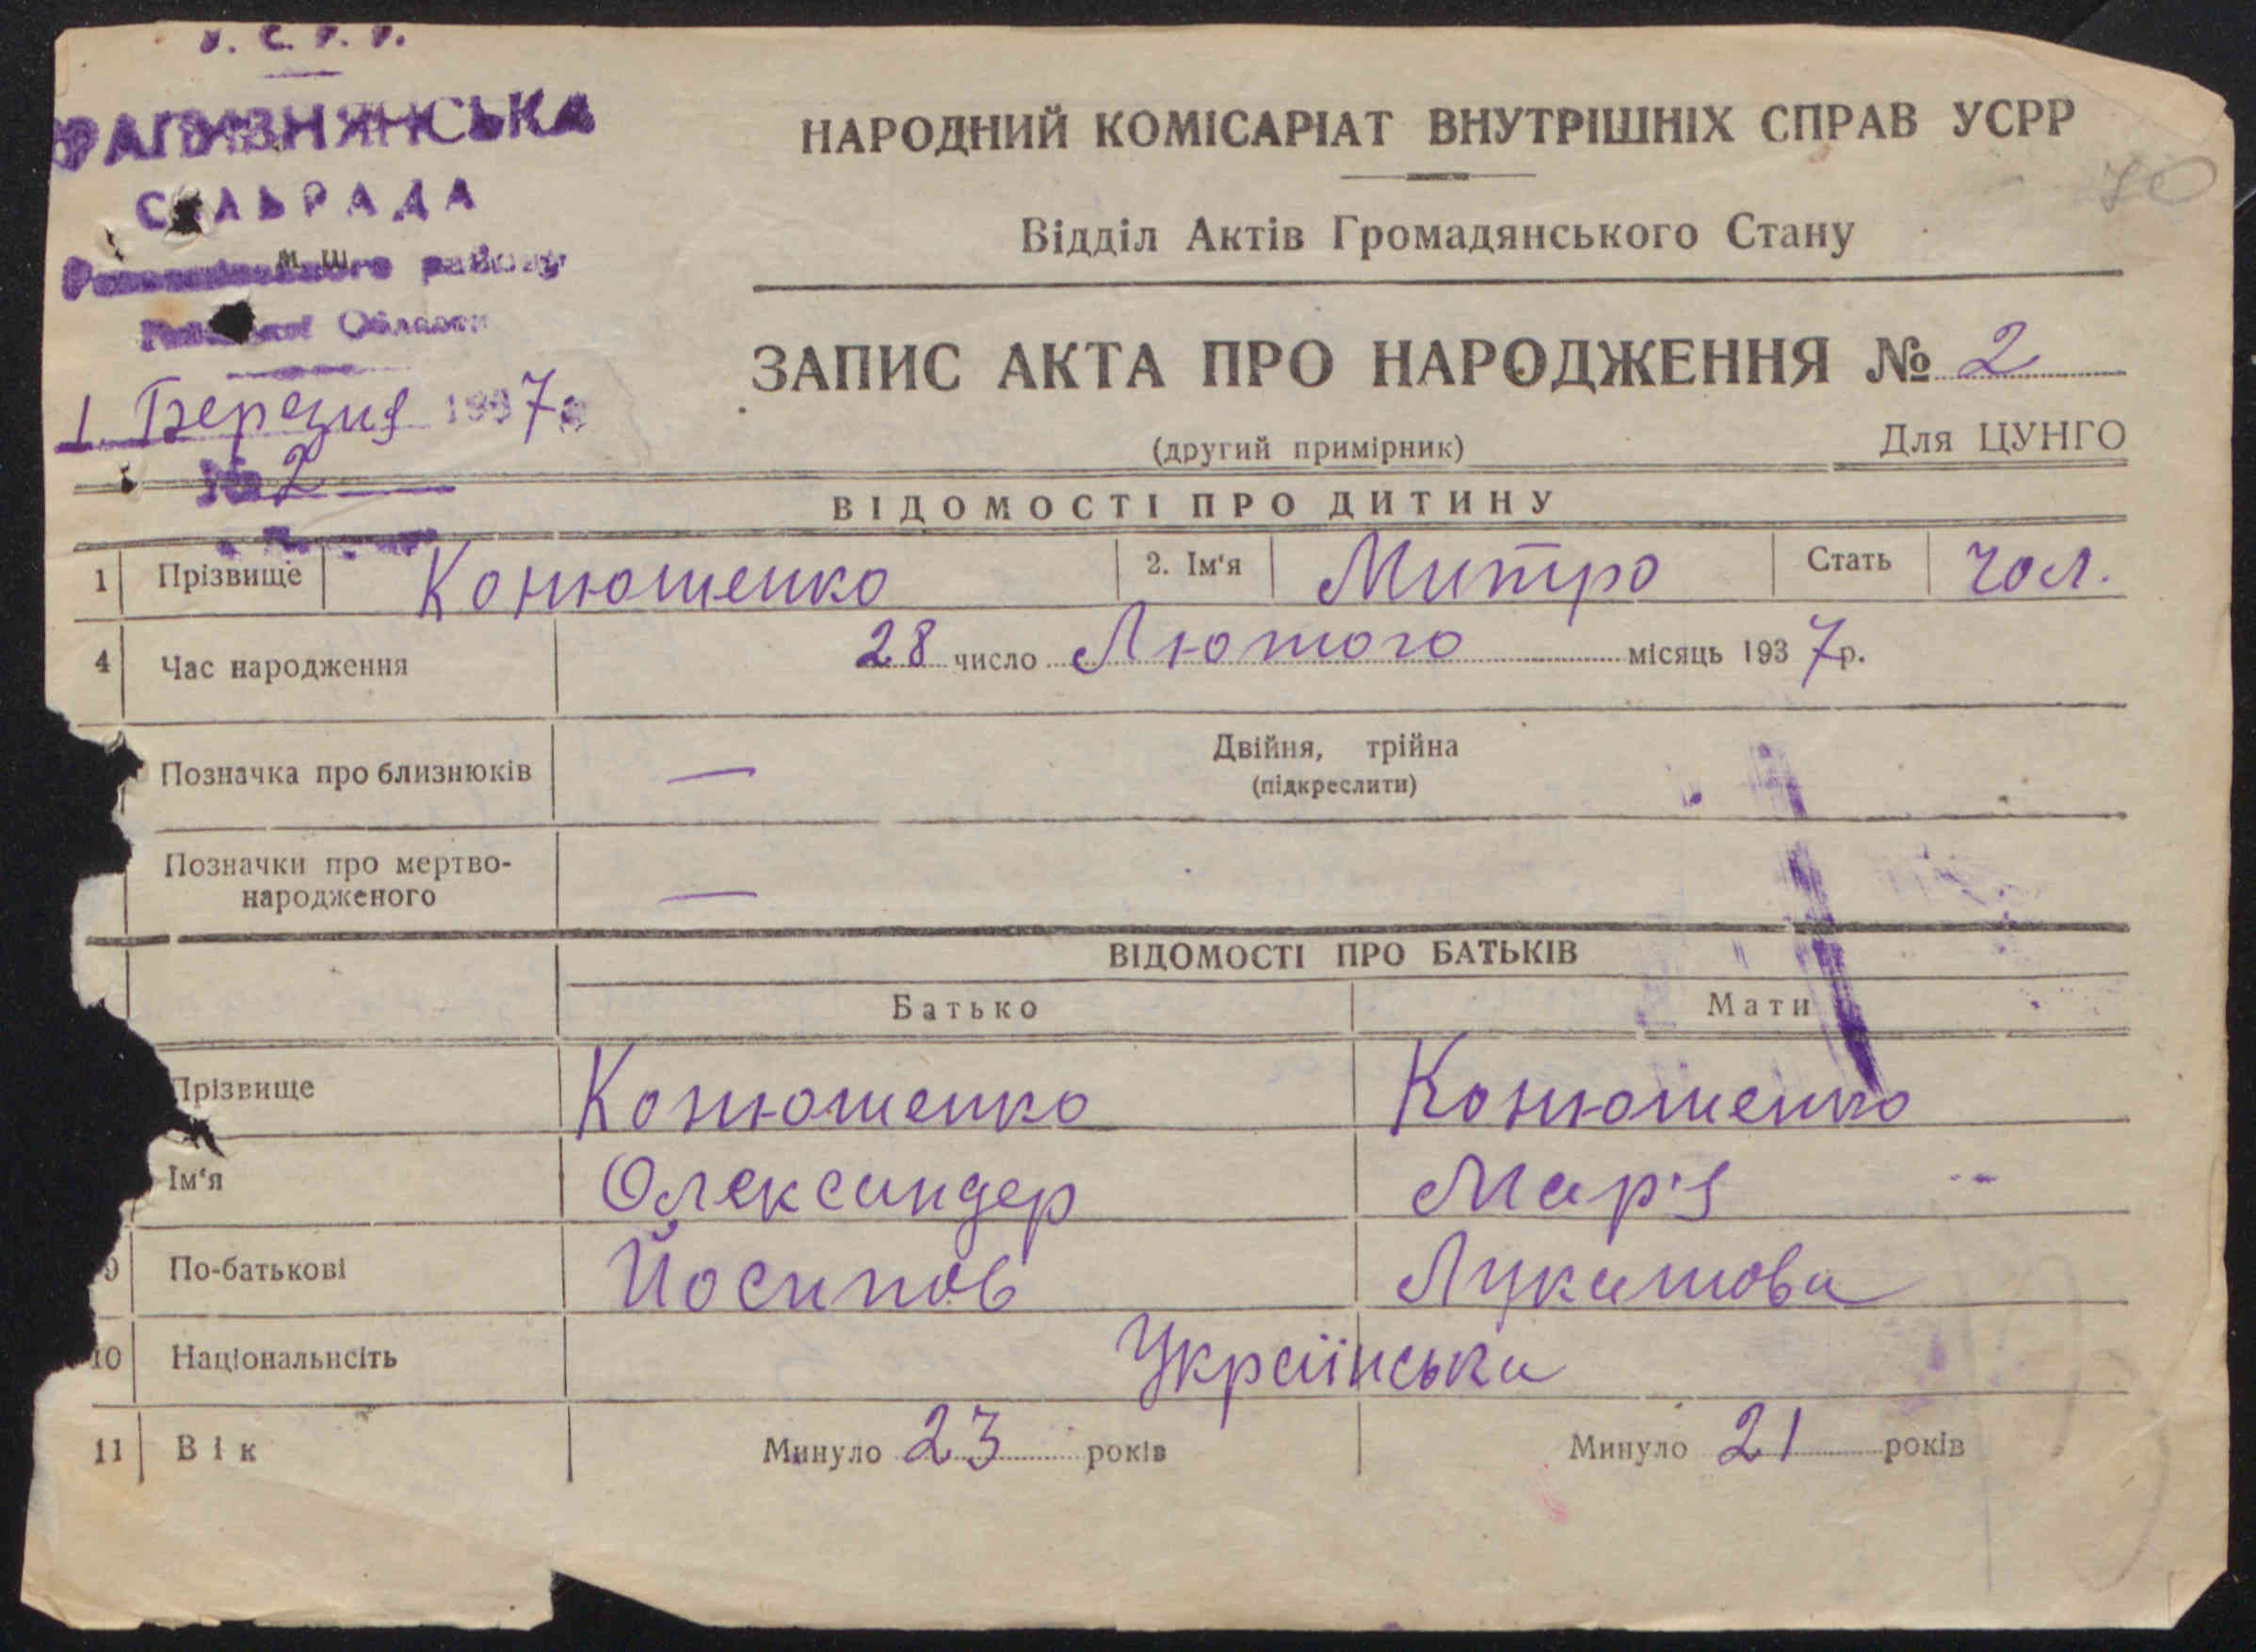 У. С. Р. Р.
СІЛЬРАДА
району
Області
1 Березня 1937
№ 2
НАРОДНИЙ КОМІСАРІАТ ВНУТРІШНІХ СПРАВ УСРР
70
Відділ Актів Громадянського Стану
ЗАПИС АКТА ПРО НАРОДЖЕННЯ № 2
(другий примірник)
Для ЦУНГО
ВІДОМОСТІ ПРО ДИТИНУ
1 Прізвище Конюшенко 2. Ім'я Митро Стать чол.
4 Час народження 28 число Лютого місяць 1937 р.
Позначка про близнюків — Двійня, трійна
(підкреслити)
Позначки про мертво-
народженого —
ВІДОМОСТІ ПРО БАТЬКІВ
Батько Мати
Прізвище Конюшенко Конюшенко
Ім'я Олександер Мар'я
9 По-батькові Йосипов Лукашова
10 Національнсіть Українська
11 Вік Минуло 23 років Минуло 21 років